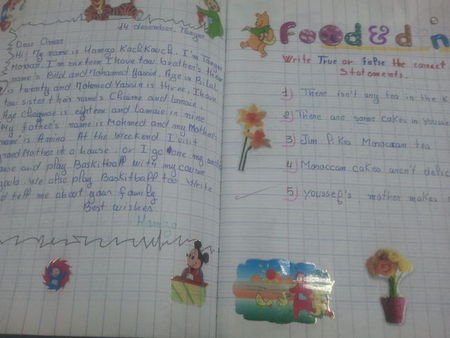 14 december, Tangier
Dear Omar
Hi! My name is Hamza Kachkouch. I'm Tangier
Morocco. I'm sixteen I have tow brother's, there
name's Bilal and Mohamad Yassin. Age is Bilal
is twenty and Mohamed Yassin is three. I have
tow sister ther name's Chaima and Lamiae
Age chaymae is eighteen and Lamiae is nine.
My father's name is Mohamed and my Mother's
name is Amina. At the weekend I visit
grand Mother at a house. or I go
and play Basketball with my
we also play Basketball too. Write
and tell me about your family
Best wishes
Hamza
Food & din
Write True or false the correct
Statements.
1) There isn't any tea in the k
2) There are some cakes in youssef
3) Jim P. kes Moroccan tea
4) Moroccan cakes aren't delic
5) youssef's mother makes